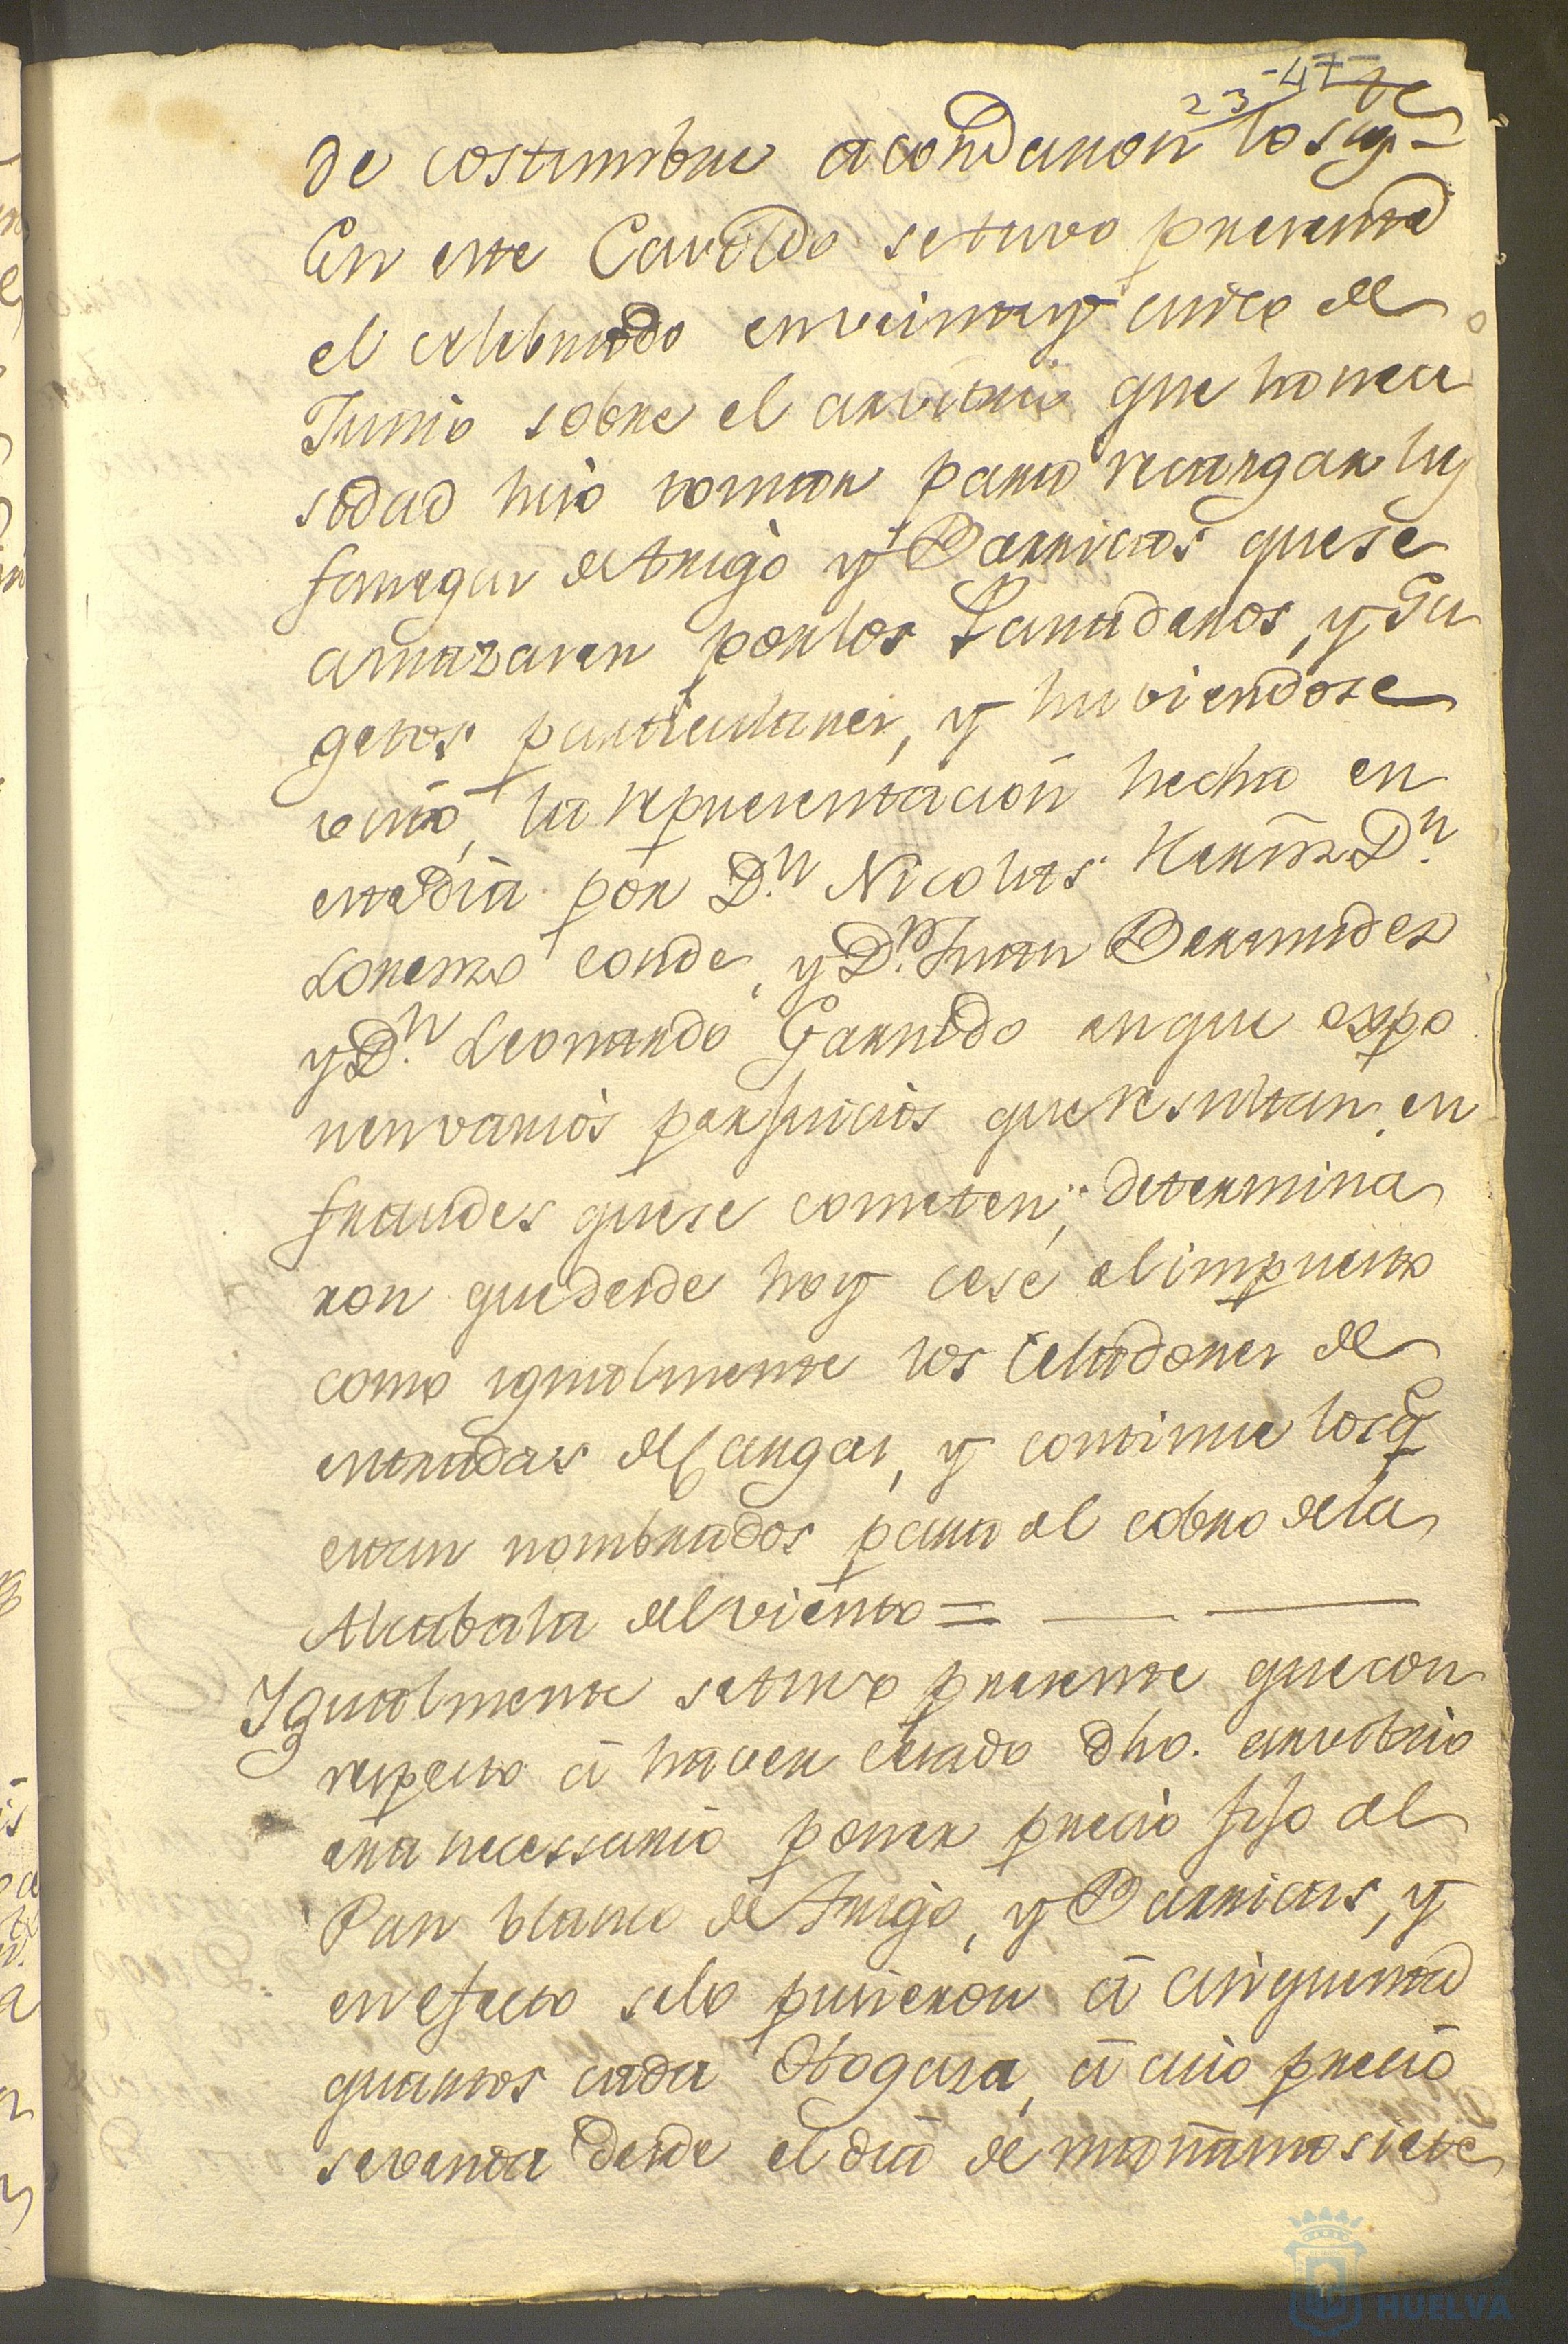 23 -47-
de costumbre acordaron lo sigte
En este Cavildo se tuvo presente
el celebrado en veinte y cinco de
Junio sobre el arvitrio que la nece
sidad hizo tomar para recargar las
fanegas de trigo y Barricas que se
amazaren por los Panaderos, y Su
getos particulares, y huviendose
visto, la representacion hecha en
este dia por Dn. Nicolas Dn.
Lorenzo Conde, y Dn. Juan Bermudez
y Dn. Leonardo Garrido en que expo
nen varios perjuicios que resultan, en
fraudes que se cometen; determina
ron que desde hoy cese el impuesto
como igualmente los Celadores de
entradas de Cargas, y continue los q
estan nombrados para el cobro de la
Alcabala del viento =
Igualmente se tuvo presente que con
respecto â haver cesado dho. arvitrio
era necessario poner precio fijo al
Pan blanco de trigo, y Barricas, y
en efecto se lo pusieron â cinquenta
quartos cada Ôtogaza, â cuio precio
se venda desde el dia de mañana siete
HUELVA